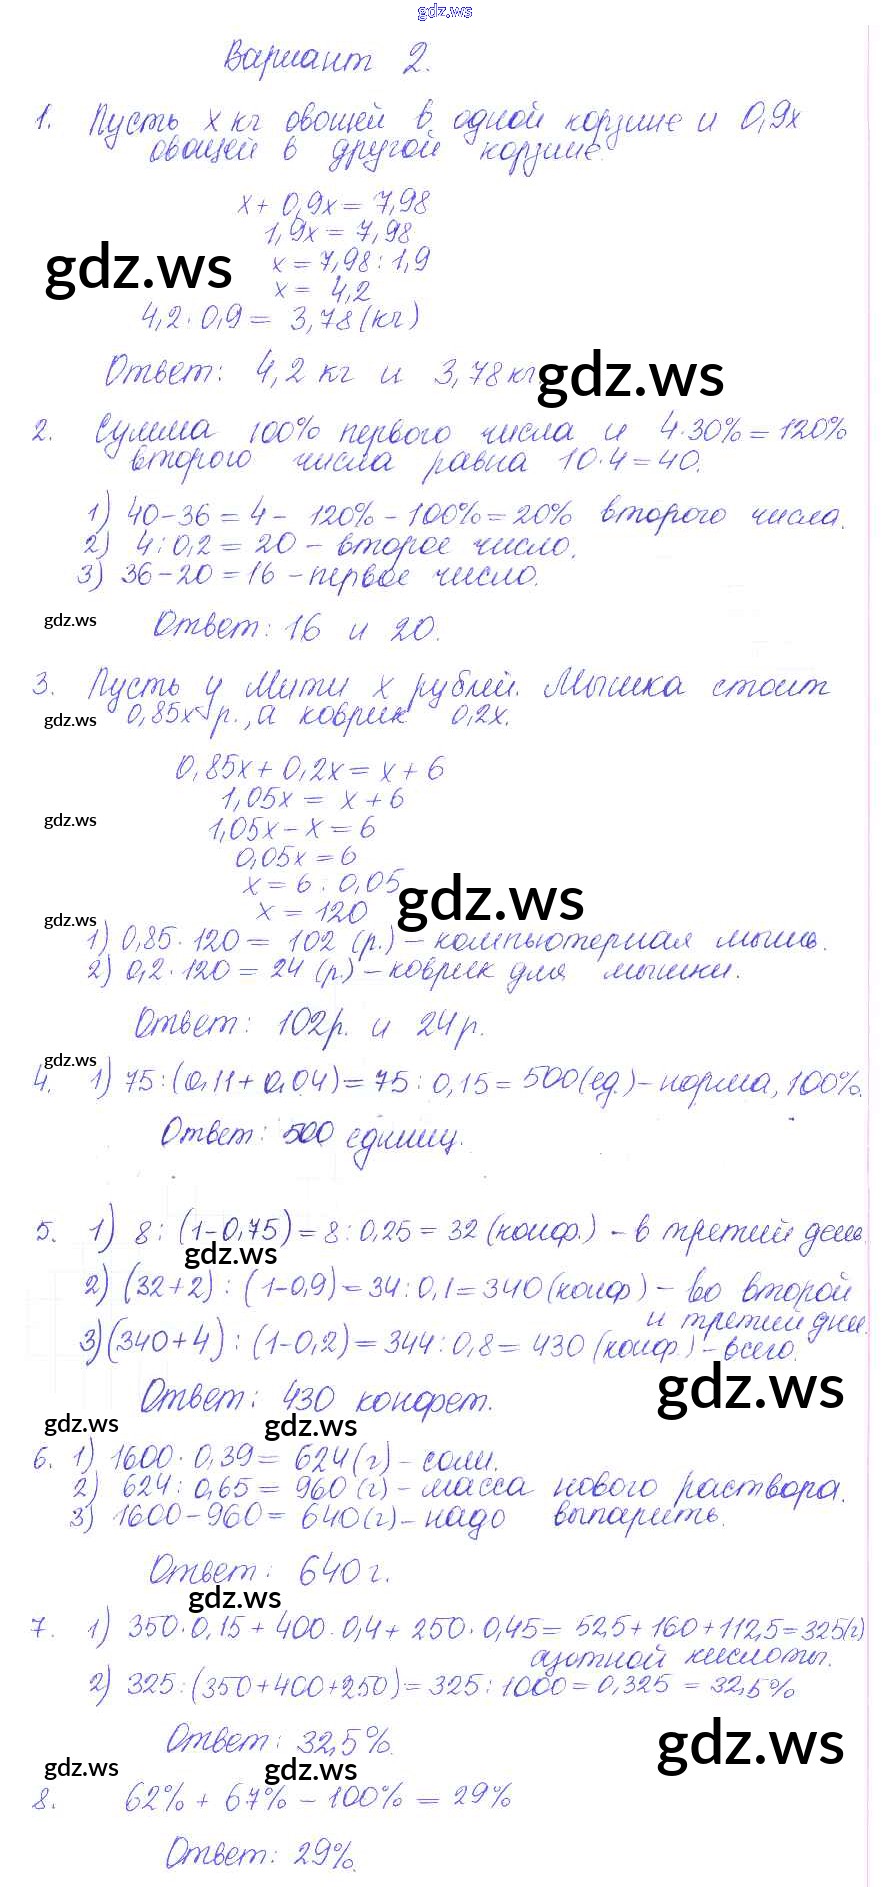 gdz.ws
Вариант 2.
1. Пусть x кг овощей в одной корзине и 0,9x
овощей в другой корзине.
x + 0,9x = 7,98
1,9x = 7,98
x = 7,98 : 1,9
gdz.ws
x = 4,2
4,2 · 0,9 = 3,78 (кг)
Ответ: 4,2 кг и 3,78 кг.
gdz.ws
2. Сумма 100% первого числа и 4·30% = 120%
второго числа равна 10·4 = 40.
1) 40 - 36 = 4 - 120% - 100% = 20% второго числа.
2) 4 : 0,2 = 20 - второе число.
3) 36 - 20 = 16 - первое число.
gdz.ws
Ответ: 16 и 20.
3. Пусть у Мити x рублей. Мышка стоит
gdz.ws
0,85x р., а коврик 0,2x.
0,85x + 0,2x = x + 6
1,05x = x + 6
gdz.ws
1,05x - x = 6
0,05x = 6
x = 6 : 0,05
gdz.ws
x = 120
gdz.ws
1) 0,85 · 120 = 102 (р.) - компьютерная мышь.
2) 0,2 · 120 = 24 (р.) - коврик для мышки.
Ответ: 102 р. и 24 р.
gdz.ws
4. 1) 75 : (0,11 + 0,04) = 75 : 0,15 = 500 (ед.) - норма, 100%.
Ответ: 500 единиц.
5. 1) 8 : (1 - 0,75) = 8 : 0,25 = 32 (конф.) - в третий день.
gdz.ws
2) (32 + 2) : (1 - 0,9) = 34 : 0,1 = 340 (конф) - во второй
и третий дни.
3) (340 + 4) : (1 - 0,2) = 344 : 0,8 = 430 (конф.) - всего.
gdz.ws
Ответ: 430 конфет.
gdz.ws
gdz.ws
6. 1) 1600 · 0,39 = 624 (г) - соли.
2) 624 : 0,65 = 960 (г) - масса нового раствора.
3) 1600 - 960 = 640 (г) - надо выпарить.
Ответ: 640 г.
gdz.ws
7. 1) 350 · 0,15 + 400 · 0,4 + 250 · 0,45 = 52,5 + 160 + 112,5 = 325 (г)
азотной кислоты.
2) 325 : (350 + 400 + 250) = 325 : 1000 = 0,325 = 32,5%
Ответ: 32,5%.
gdz.ws
gdz.ws
gdz.ws
8. 62% + 67% - 100% = 29%
Ответ: 29%.